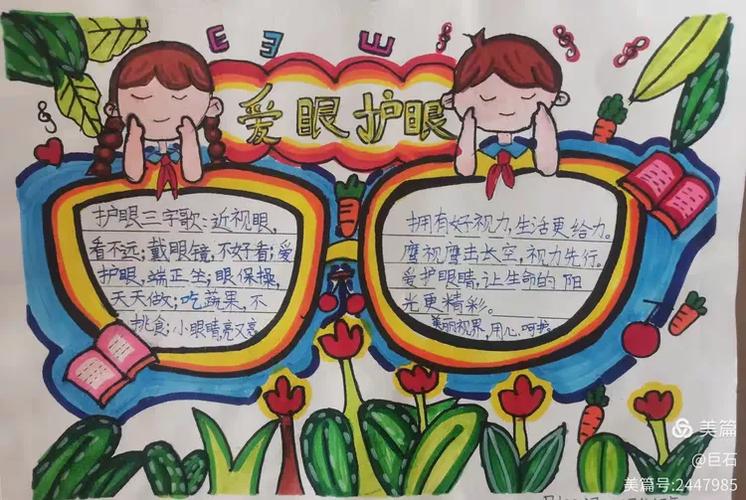 E ヨ 山
爱眼护眼
护眼三字歌:近视眼,
看不远;戴眼镜,不好看;爱
护眼,端正坐;眼保操,
天天做;吃蔬果,不
挑食;小眼睛亮又亮
拥有好视力,生活更给力。
鹰视鹰击长空,视力先行。
爱护眼睛,让生命的阳
光更精彩。
美丽视界,用心呵护。
美篇
@巨石
美篇号:2447985